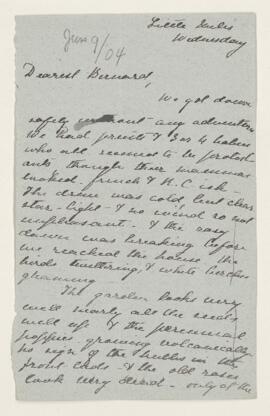 June 9/04
Little Iselis
Wednesday
Dearest Bernard,
We got down
safely without any adventure
We had priests & 3 or 4 babies
who all seemed to be protest
ants though their mammas
looked French & R.C. ish.
The drive was cold, but clear
star-light & no wind so not
unpleasant. & the easy
dawn was breaking before
we reached the house the
birds twittering & white birches
gleaming
The garden looks very
well nearly all the seeds
well up & the perennial
poppies growing volcanically
no sign of the bulbs in the
front beds & the old roses
look very dead - only of the